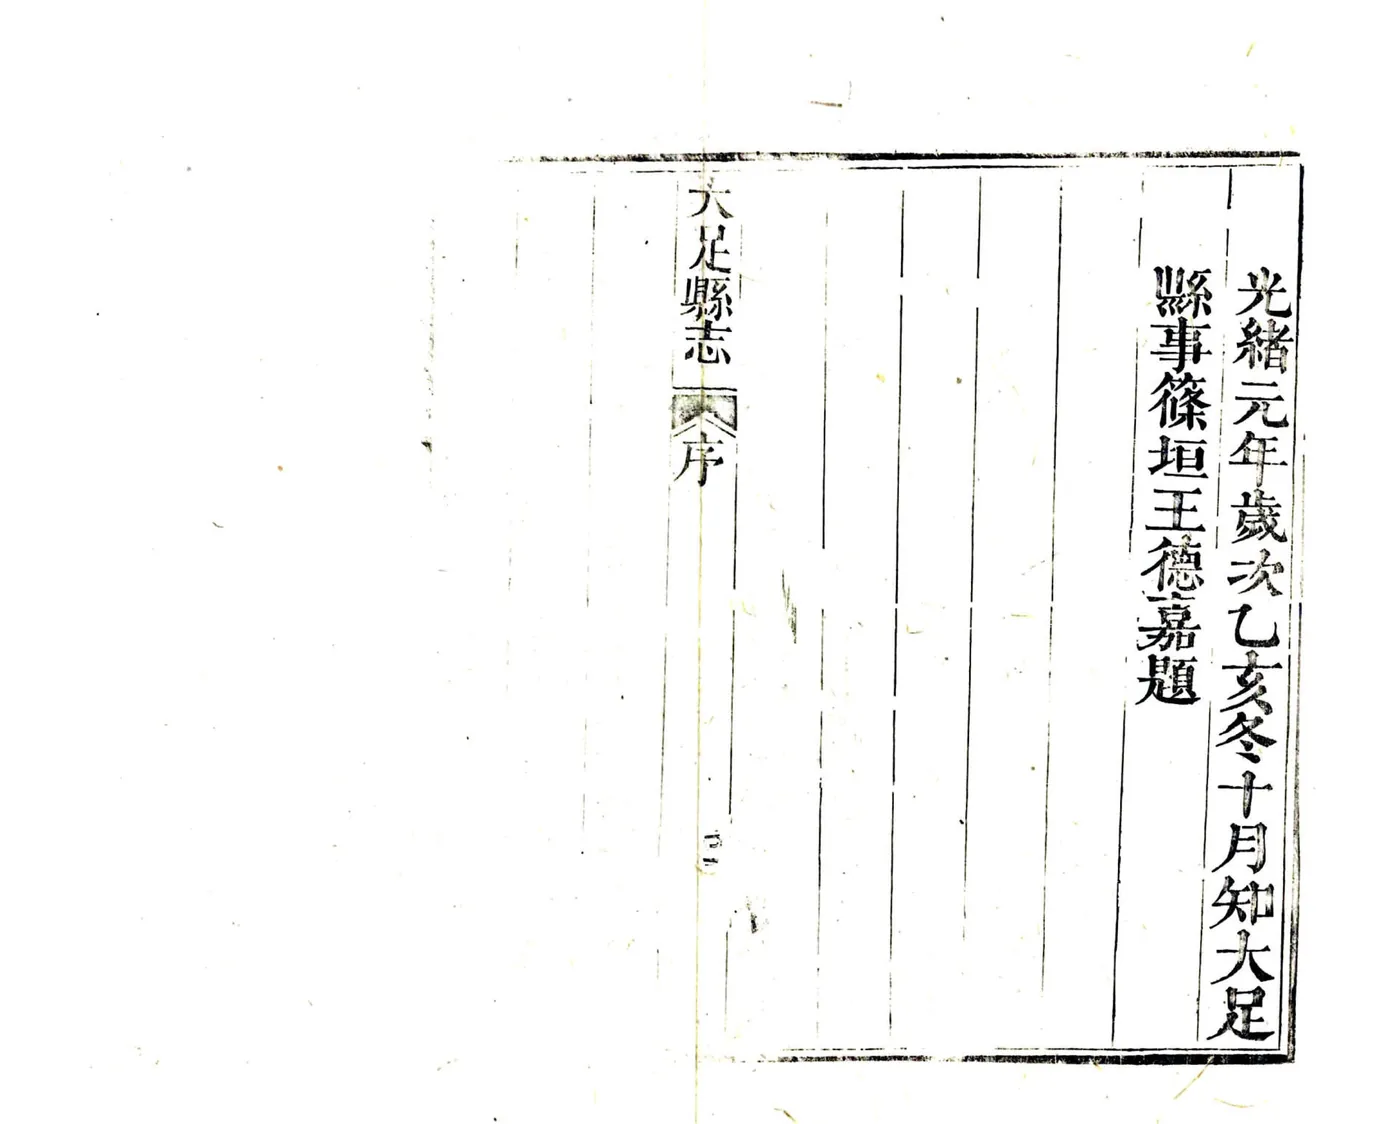 光緒元年歲次乙亥冬十月知大足
縣事篠垣王德嘉題
大足縣志
序